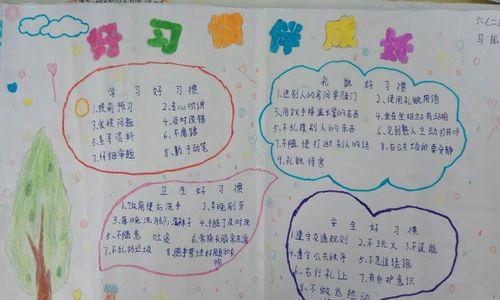 好习惯伴成长
六(二)
习
学习好习惯
1、提前预习 2、专心听讲
3、发现问题 4、及时改错
5、查寻资料 6、不磨蹭
7、仔细审题 8、勤于动笔
礼貌好习惯
1、进别人的房间要敲门 2、使用礼貌用语
3、用双手接递长辈的东西 4、坐有坐相站有站相
5、不乱摸别人的东西 6、见到熟人主动打招呼
7、不随便打断别人的话 8、在公共场所要安静
9、礼貌待客
卫生好习惯
1、饭前便后洗手 2、早晚刷牙
3、每晚洗脚 袜子 4、手脏了及时洗
5、不随意吐痰 6、常换衣服常洗澡
7、不乱扔垃圾 8、
安全好习惯
1、遵守交通规则 2、不玩火 3、不逗能
4、遵守公共秩序 5、不急追猛跑
6、右行礼让 7、有自护意识
8、不做危险动